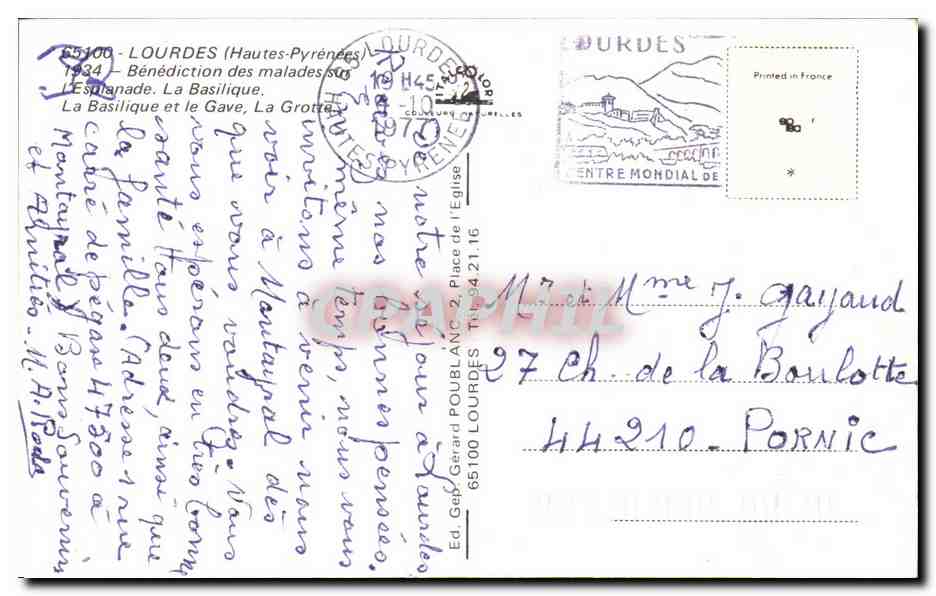 65100 - LOURDES (Hautes-Pyrénées)
1934 – Bénédiction des malades sur
l'Esplanade. La Basilique.
La Basilique et le Gave, La Grotte.
LOURDES
19 H 45
-10
1977
HAUTES PYRENEES
COULEURS NATURELLES
LOURDES
CENTRE MONDIAL DE
Printed in France
*
De notre séjour à Lourdes
nos bonnes pensées.
même temps, nous vous
invitons à venir nous
voir à Montayral dès
que vous voudrez. Vous
vous espérons en très bonne
santé tous deux, ainsi que
la famille. (Adresse : rue
carré de pégans 47500 à
Montayral) Bons Souvenirs
et Amitiés - M. A.
Ed. Gep. Gérard POUBLANC 2, Place de l'Eglise
65100 LOURDES Tél. 94.21.16
CPAPHIL
Mr et Mme J. Gayaud
27 Ch. de la Boulotte
44210 - PORNIC